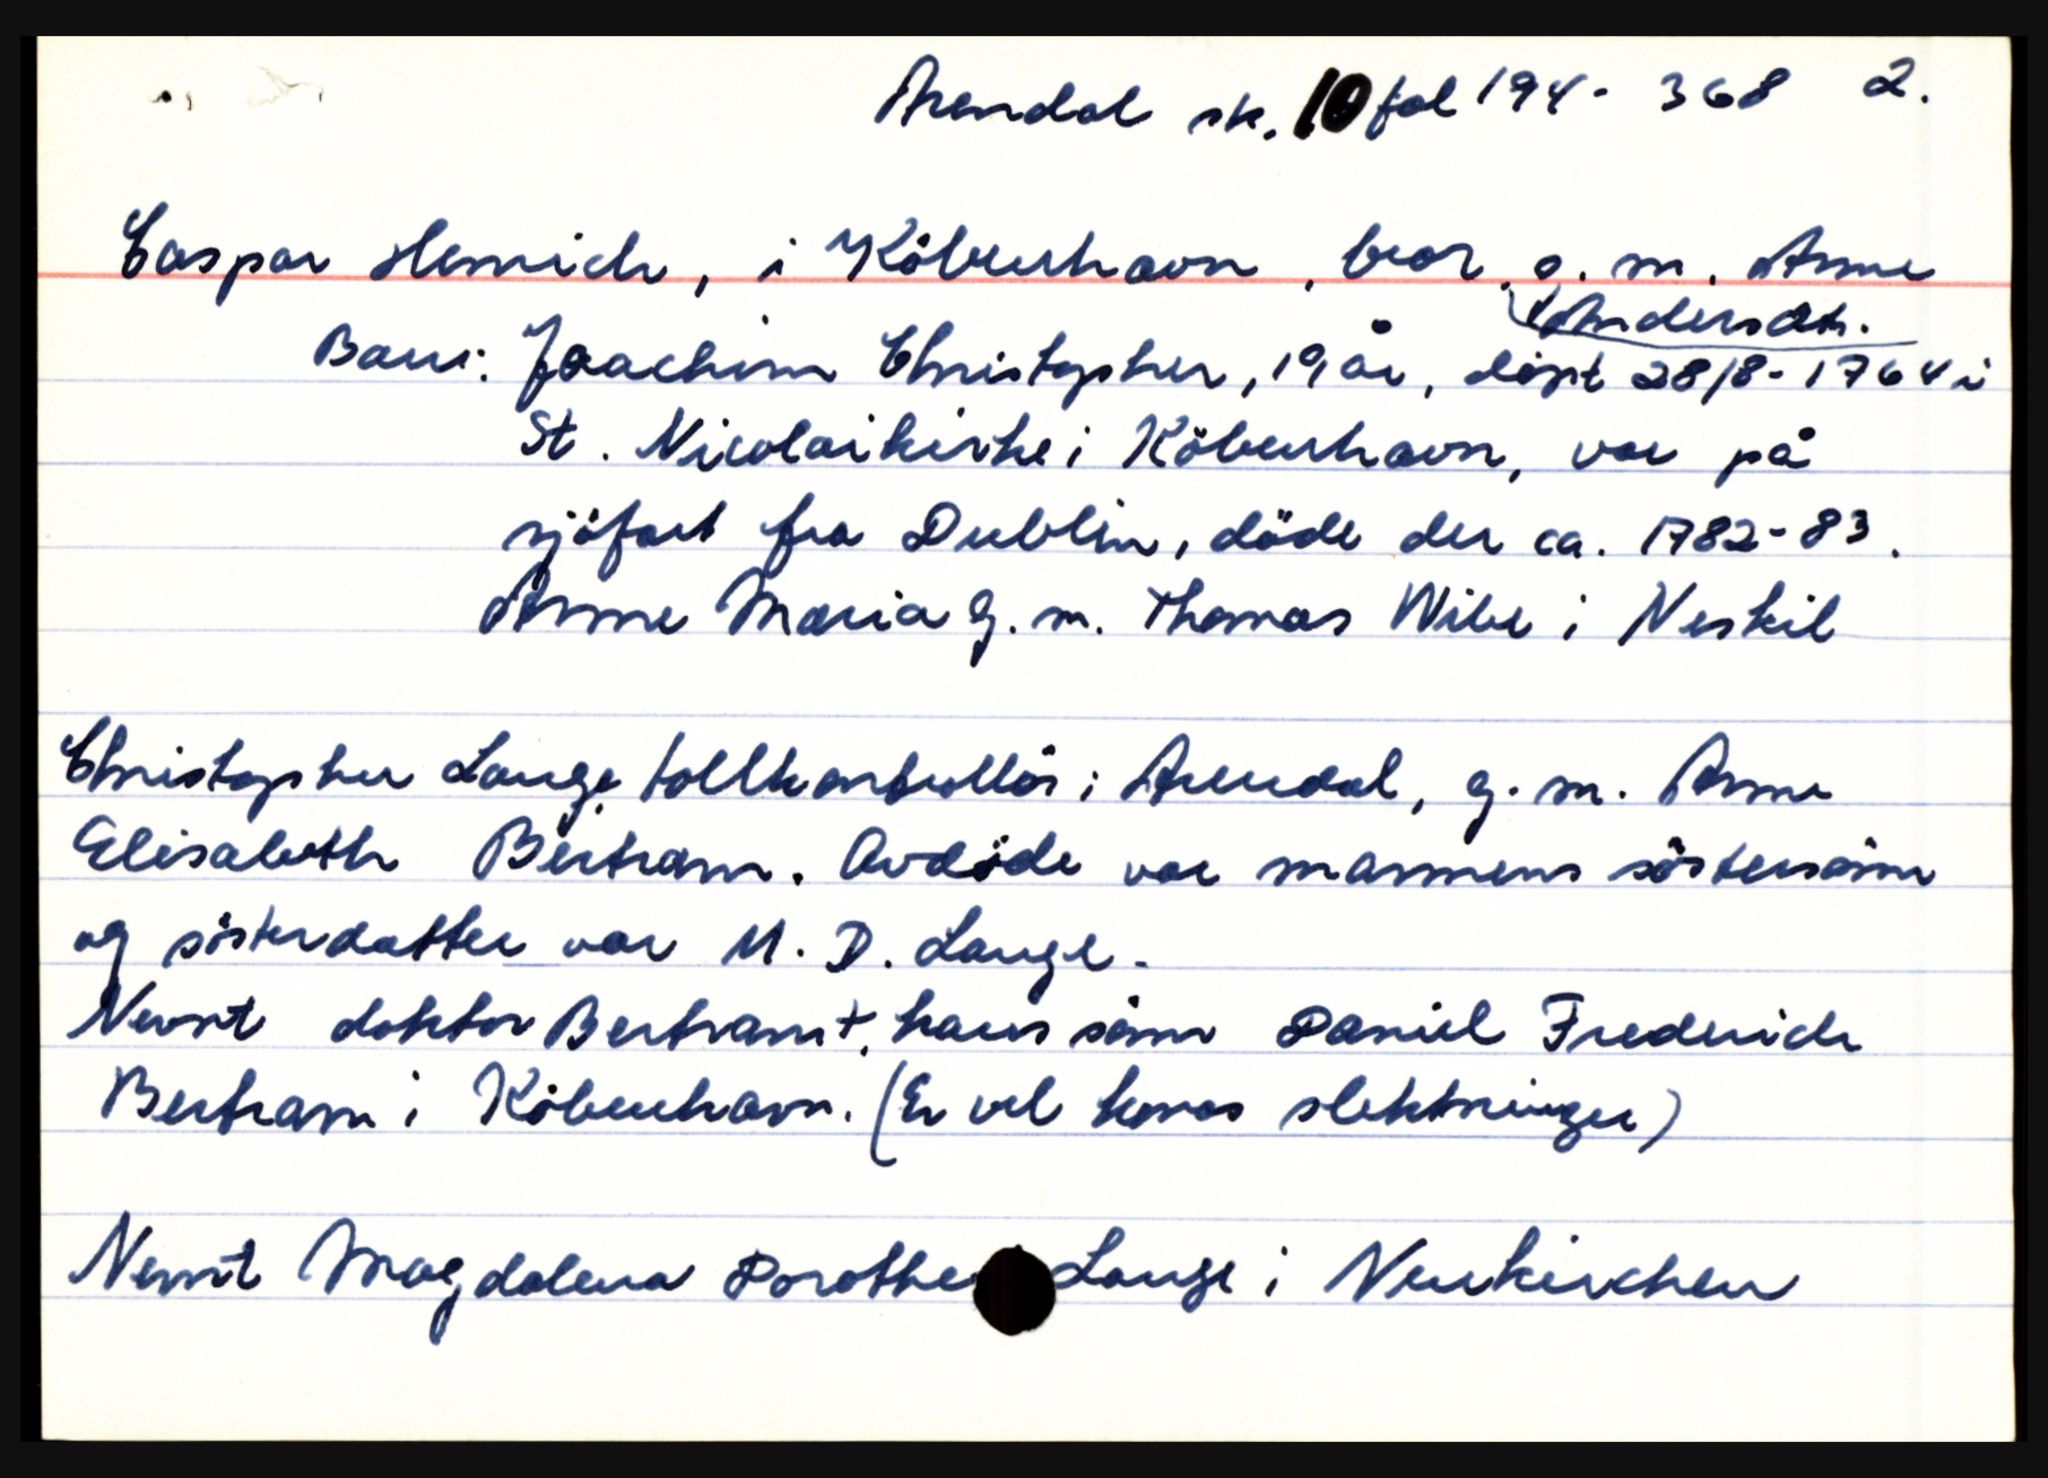 Arendal sk. 10 fol 194-368 2.
Caspar Henrich, i Köbenhavn, bror, g. m. Anne
Andersdtr.
Barn: Joachim Christopher, 19 år, döpt 28/8-1764 i
St. Nicolaikirke i Köbenhavn, var på
sjöfart fra Dublin, döde der ca. 1782-83.
Anne Maria g. m. Thomas Wibe i Neskil
Christopher Lange, tollkontrollör i Arendal, g. m. Anne
Elisabeth Bertram. Avdöde var mannens söstersönn
og sösterdatter var M. D. Lange.
Nevnt doktor Bertram +, hans sönn Daniel Frederich
Bertram i Köbenhavn. (Er vel konas slektninger)
Nevnt Magdalena Dorothe Lange i Neukirchen